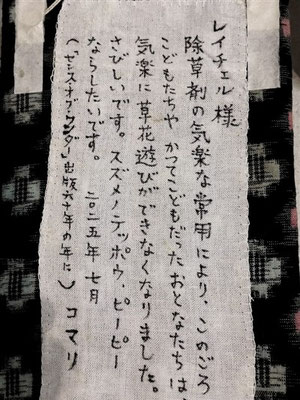 レイチェル様
除草剤の気楽な常用により、このごろ
こどもたちや かつてこどもだったおとなたちは、
気楽に草花遊びができなくなりました。
さびしいです。スズメノテッポウ、ピーピー
ならしたいです。 二〇二五年 七月
(「センスオブワンダー」出版六十年の年に) コマリ